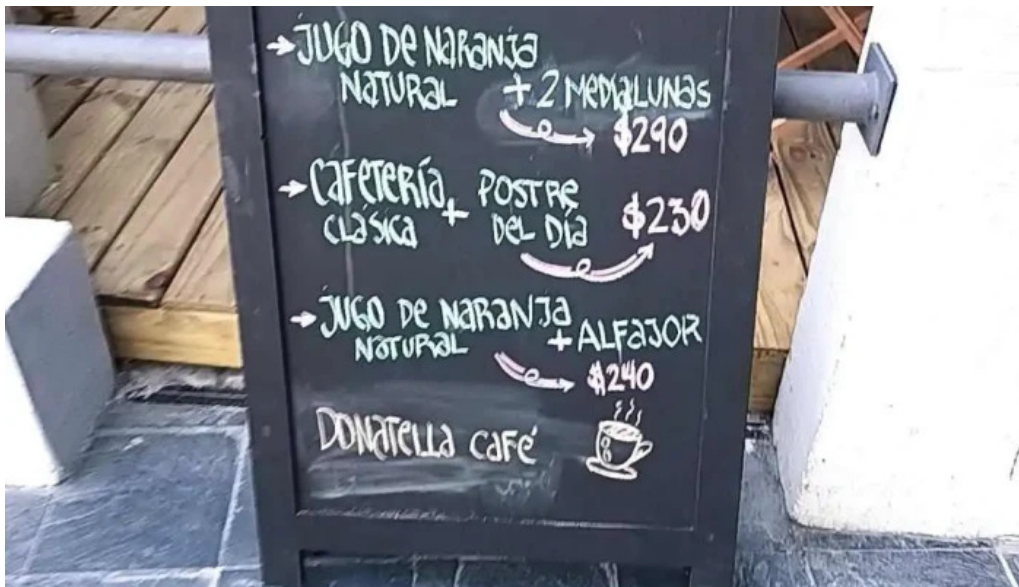 →JUGO DE NARANJA
NATURAL + 2 MEDIALUNAS
$290
→CAFETERÍA + POSTRE
CLASICA DEL DÍA $230
→JUGO DE NARANJA
NATURAL + ALFAJOR
$240
DONATELLA CAFÉ